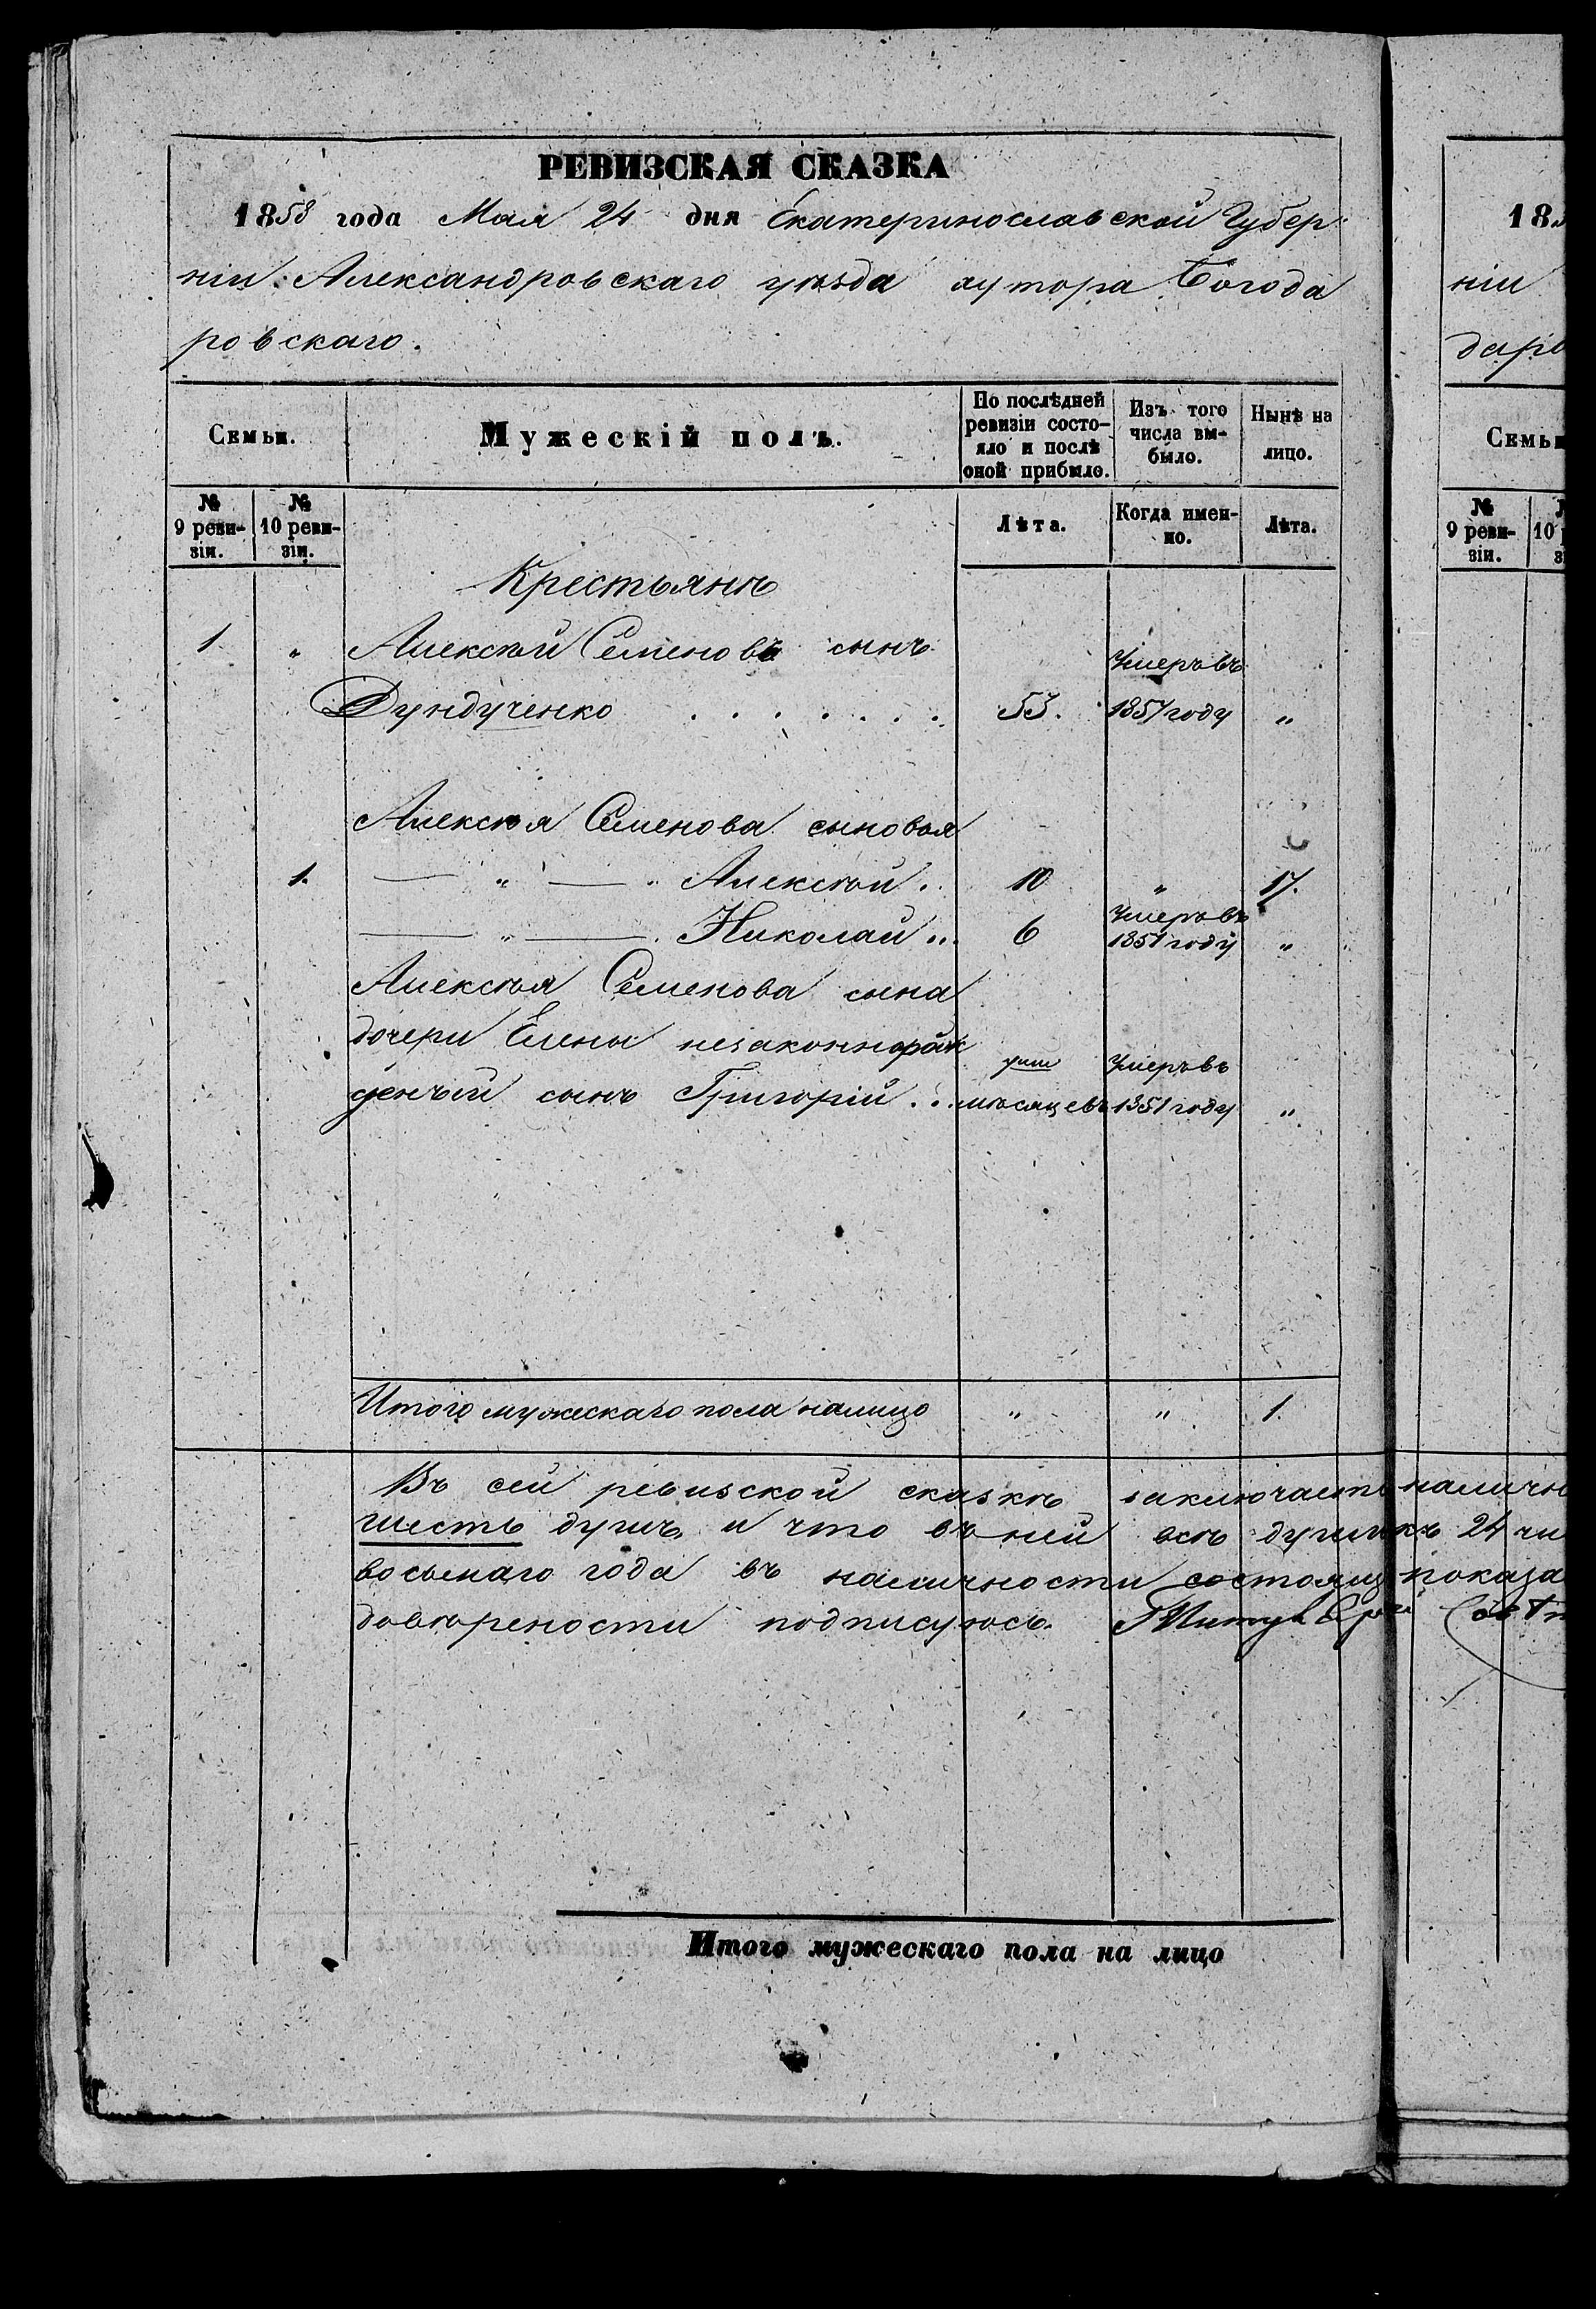 РЕВИЗСКАЯ СКАЗКА
1858 года Мая 24 дня Екатеринославской Губер-
ніи Александровскаго уѣзда хутора Богода
ровскаго.
Семьи.
Мужескій полъ.
По послѣдней ревизіи состо-яло и послѣ оной прибыло.
Изъ того числа вы-было.
Нынѣ на лицо.
№ 9 реви-зіи.
№ 10 реви-зіи.
Лѣта.
Когда имен-но.
Лѣта.
Крестьянъ
1. " Алексѣй Семеновъ сынъ Умеръ въ
Дундученко . . . . . . . 53. 1857 году "
Алексѣя Семенова сыновья
1. — " — " Алексѣй . 10 " 17.
— " — . Николай ... 6 Умеръ въ 1851 году "
Алексѣя Семенова сына
дочери Елены незаконнорож
денный сынъ Григорій ... мѣсяцевъ Умеръ въ 1851 году "
Итого мужескаго пола налицо " " 1.
Въ сей ревизской сказкѣ заключаетъ наличн
шесть душъ и что въ ней всѣ души къ 24 чи
восьмаго года въ наличности состоящ показа
довѣрености подписуюсь. Титул
Итого мужескаго пола на лицо
18
ніи
даро
Семьи
№ 9 реви-зіи.
10